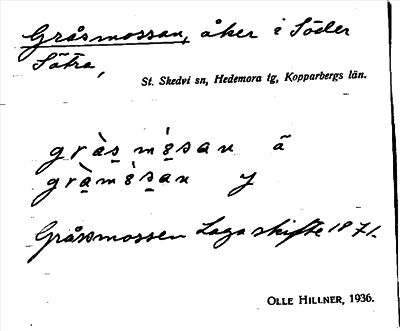 Gråsmossan, åker i Söder
Sätra,
St. Skedvi sn, Hedemora tg, Kopparbergs län.
ä
y
Gråssmossen Laga skifte 1871.
OLLE HILLNER, 1936.